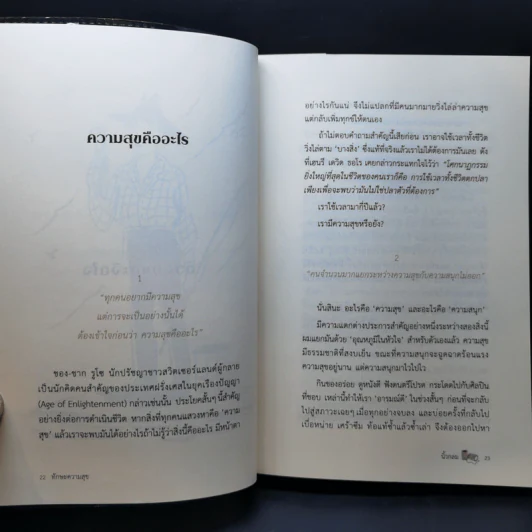 ความสุขคืออะไร
1
"ทุกคนอยากมีความสุข
แต่การจะเป็นอย่างนั้นได้
ต้องเข้าใจก่อนว่า ความสุขคืออะไร"
ฌอง-ชาก รูโซ นักปรัชญาชาวสวิตเซอร์แลนด์ผู้กลาย
เป็นนักคิดคนสำคัญของประเทศฝรั่งเศสในยุคเรืองปัญญา
(Age of Enlightenment) กล่าวเช่นนั้น ประโยคสั้นๆ นี้สำคัญ
อย่างยิ่งต่อการดำเนินชีวิต หากสิ่งที่ทุกคนแสวงหาคือ 'ความ
สุข' แล้วเราจะพบมันได้อย่างไรถ้าไม่รู้ว่าสิ่งนี้คืออะไร มีหน้าตา
22 ทักษะความสุข
อย่างไรกันแน่ จึงไม่แปลกที่มีคนมากมายวิ่งไล่ล่าความสุข
แต่กลับเพิ่มทุกข์ให้ตนเอง
ถ้าไม่ตอบคำถามสำคัญนี้เสียก่อน เราอาจใช้เวลาทั้งชีวิต
วิ่งไล่ตาม 'บางสิ่ง' ซึ่งแท้ที่จริงแล้วเราไม่ได้ต้องการมันเลย ดัง
ที่เฮนรี เดวิด ธอโร เคยกล่าวกระแทกใจไว้ว่า "โศกนาฏกรรม
ยิ่งใหญ่ที่สุดในชีวิตของคนเราก็คือ การใช้เวลาทั้งชีวิตตกปลา
เพียงเพื่อจะพบว่ามันไม่ใช่ปลาตัวที่ต้องการ"
เราใช้เวลามากี่ปีแล้ว?
เรามีความสุขหรือยัง?
2
"คนจำนวนมากแยกระหว่างความสุขกับความสนุกไม่ออก"
นั่นสินะ อะไรคือ 'ความสุข' และอะไรคือ 'ความสนุก'
มีความแตกต่างประการสำคัญอย่างหนึ่งระหว่างสองสิ่งนี้
ผมแยกมันด้วย 'อุณหภูมิในหัวใจ' สำหรับตัวเองแล้ว ความสุข
มีธรรมชาติที่สงบเย็น ขณะที่ความสนุกจะฉูดฉาดร้อนแรง
ความสุขอยู่นาน แต่ความสนุกมาไวไปไว
กินของอร่อย ดูหนังดี ฟังดนตรีโปรด กระโดดไปกับศิลปิน
ที่ชอบ เหล่านี้ทำให้เรา 'อารมณ์ดี' ในช่วงสั้นๆ ก่อนที่จะกลับ
ไปสู่สภาวะเฉยๆ เมื่อทุกอย่างจบลง และบ่อยครั้งที่กลับไป
เบื่อหน่าย เศร้าซึม ท้อแท้ซ้ำแล้วซ้ำเล่า จึงต้องออกไปหา
นิ้วกลม
23